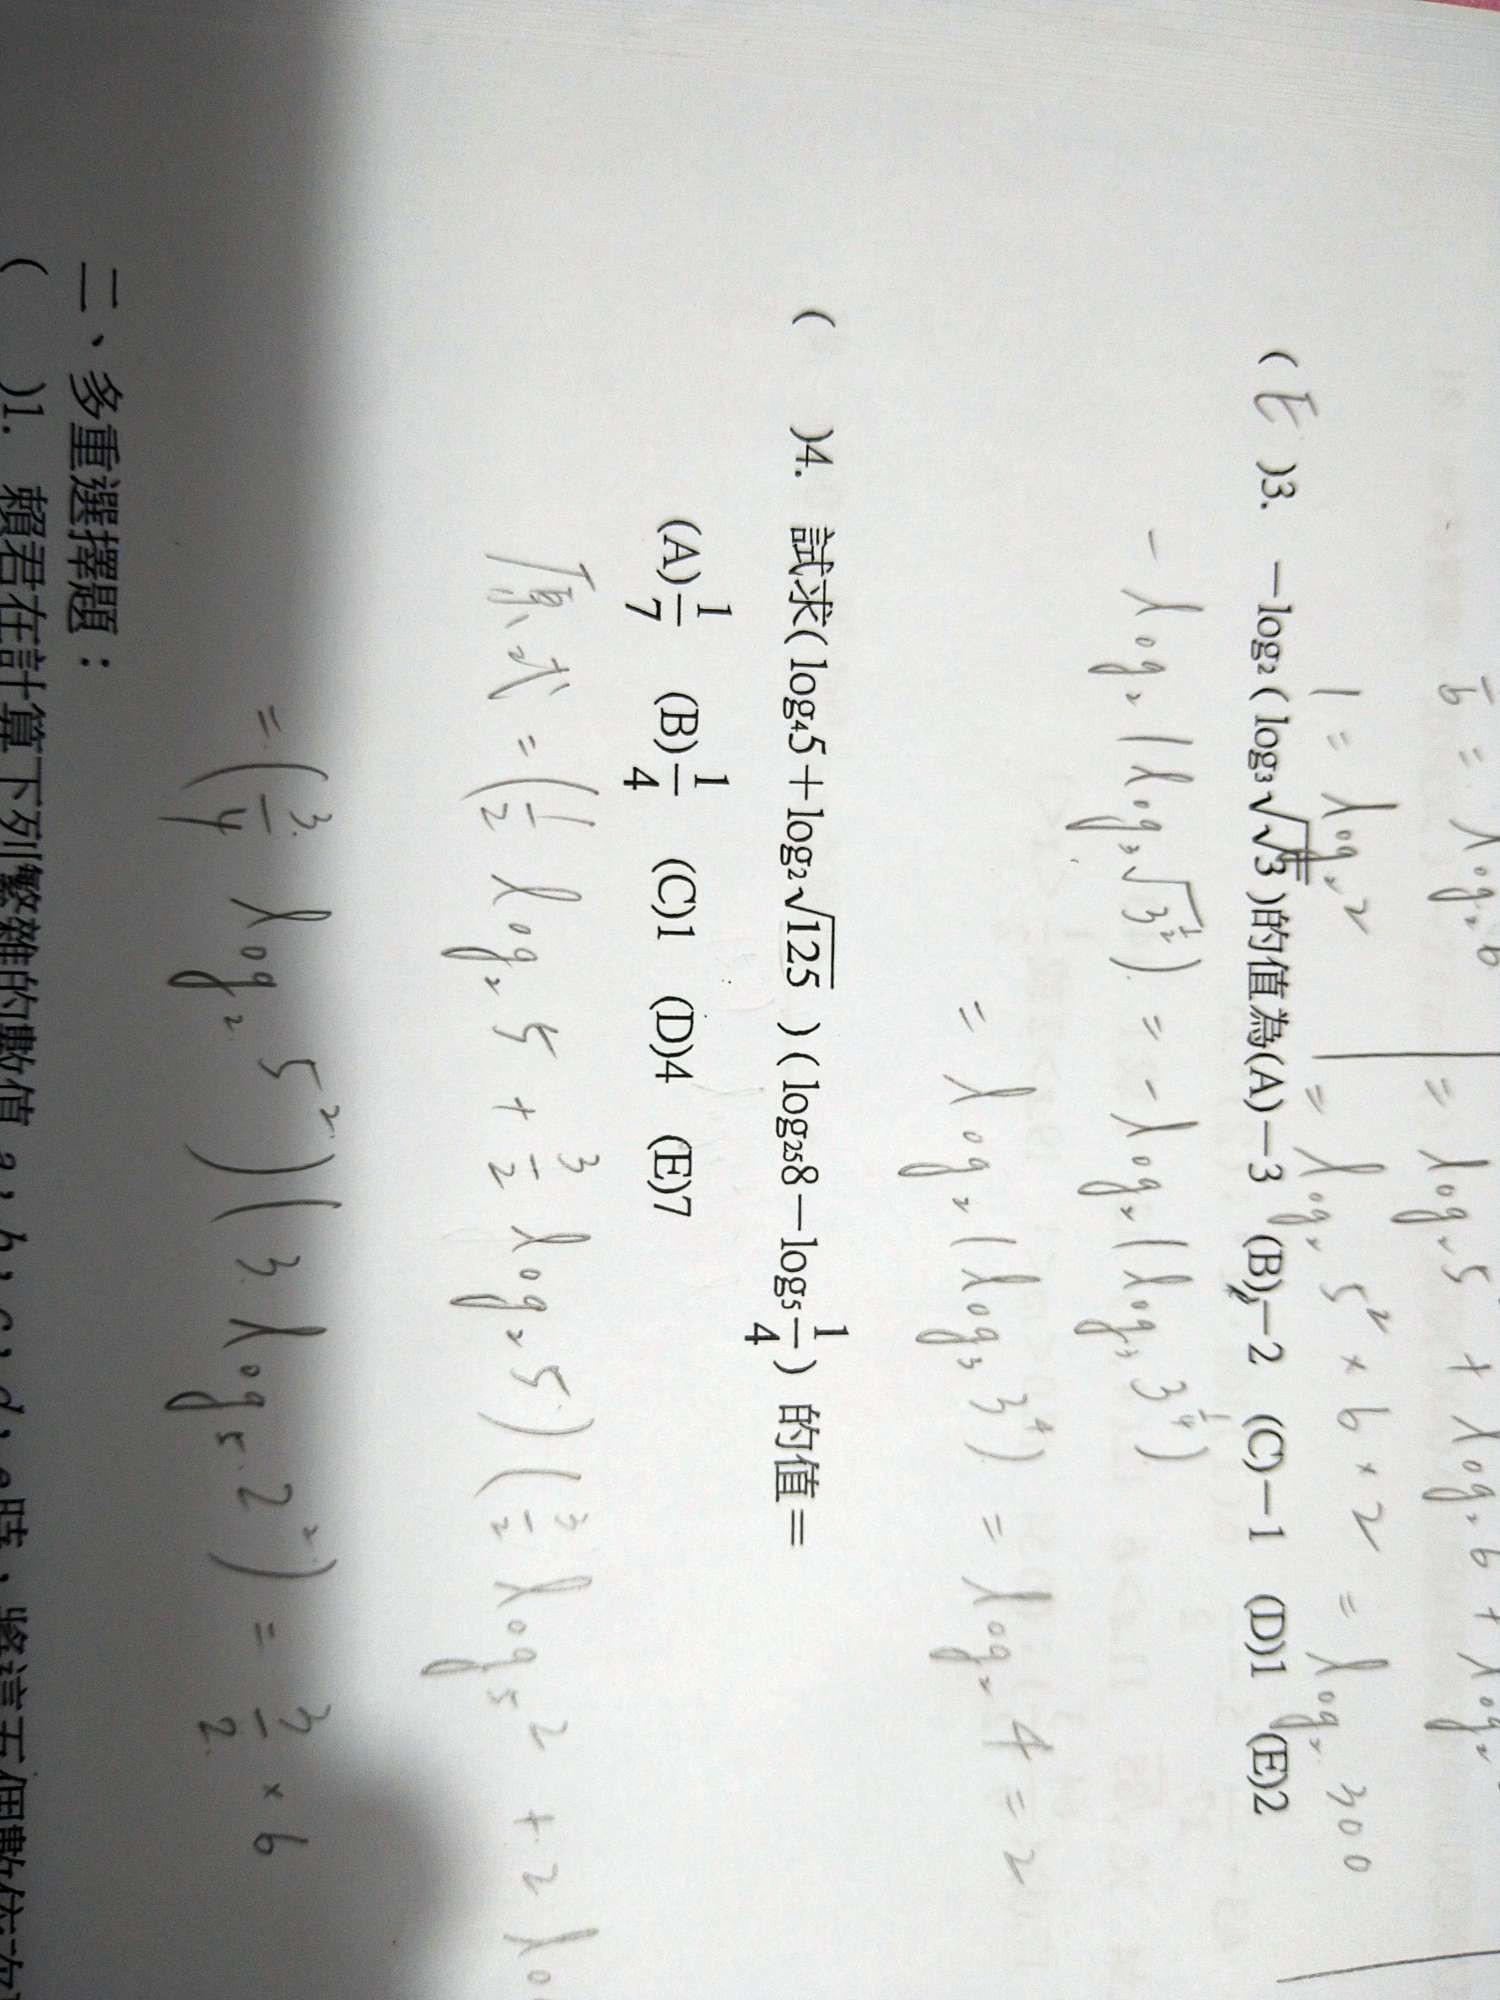 = log₂5 + log₂6 + log₂
1 = log₂2
= log₂5²×6×2 = log₂300
( E )3. －log₂( log₃√√3 )的值為(A)－3 (B)－2 (C)－1 (D)1 (E)2
－log₂(log₃√3^½) = －log₂(log₃3^¼)
= log₂(log₃3⁴) = log₂4 = 2
( )4. 試求( log₄5＋log₂√125 )( log₂₅8－log₅1/4 ) 的值＝
(A)1/7 (B)1/4 (C)1 (D)4 (E)7
原式 = (1/2 log₂5 + 3/2 log₂5)(3/2 log₅2 + 2 lo
= (3/4 log₂5²)(3 log₅2²) = 3/2 × 6
二、多重選擇題：
( )1. 賴君在計算下列繁雜的數值